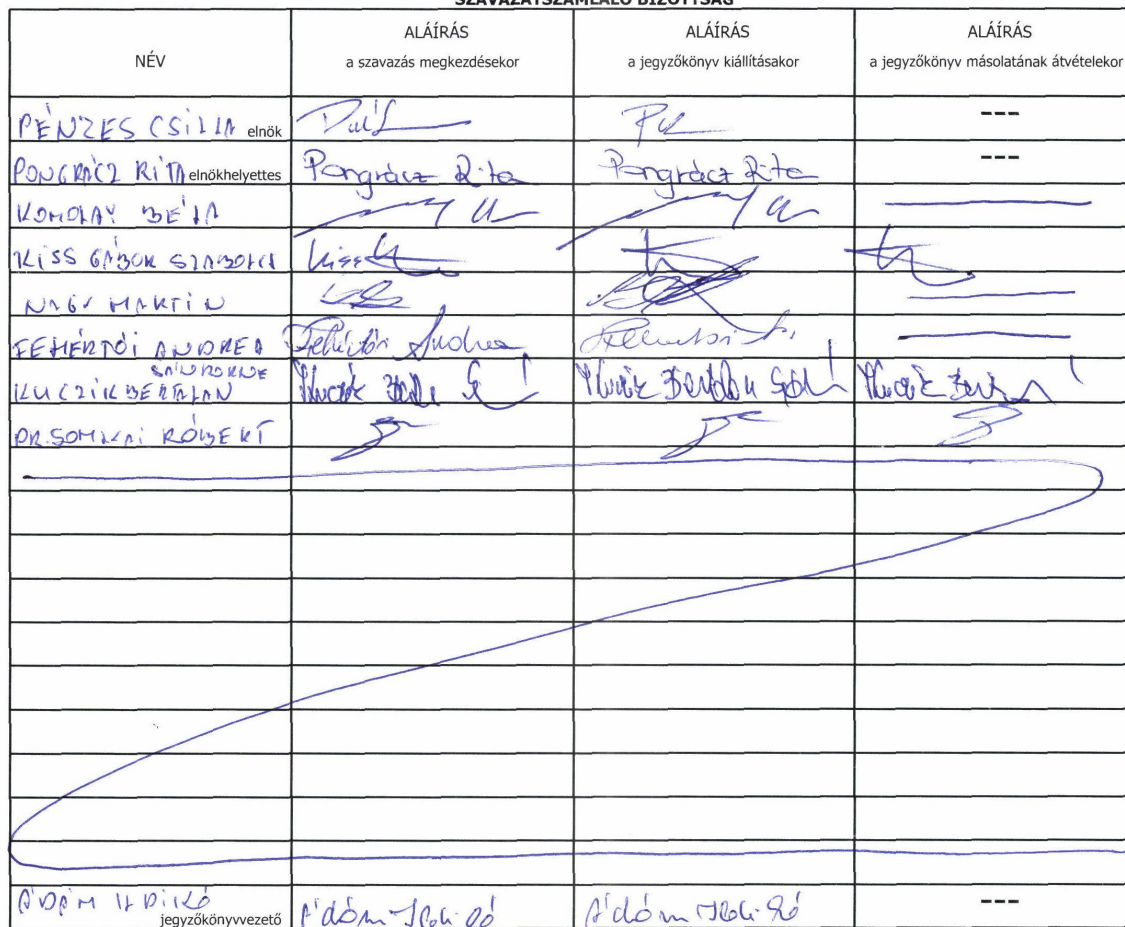 SZAVAZATSZÁMLÁLÓ BIZOTTSÁG
NÉV
ALÁÍRÁS
a szavazás megkezdésekor
ALÁÍRÁS
a jegyzőkönyv kiállításakor
ALÁÍRÁS
a jegyzőkönyv másolatának átvételekor
PÉNZES CSILLA elnök ---
PONGRÁCZ RITA elnökhelyettes Pongrácz Rita Pongrácz Rita ---
KOMOLAY BÉLA
KISS GÁBOR SZABOLCS Kiss
NAGY MARTIN
FEHÉRTÓI ANDREA Fehértói Andrea
SÁNDORNÉ
KUCZIK BERTALAN
DR. SOMLAI RÓBERT
ÁDÁM ILDIKÓ jegyzőkönyvvezető Ádám Ildikó Ádám Ildikó ---